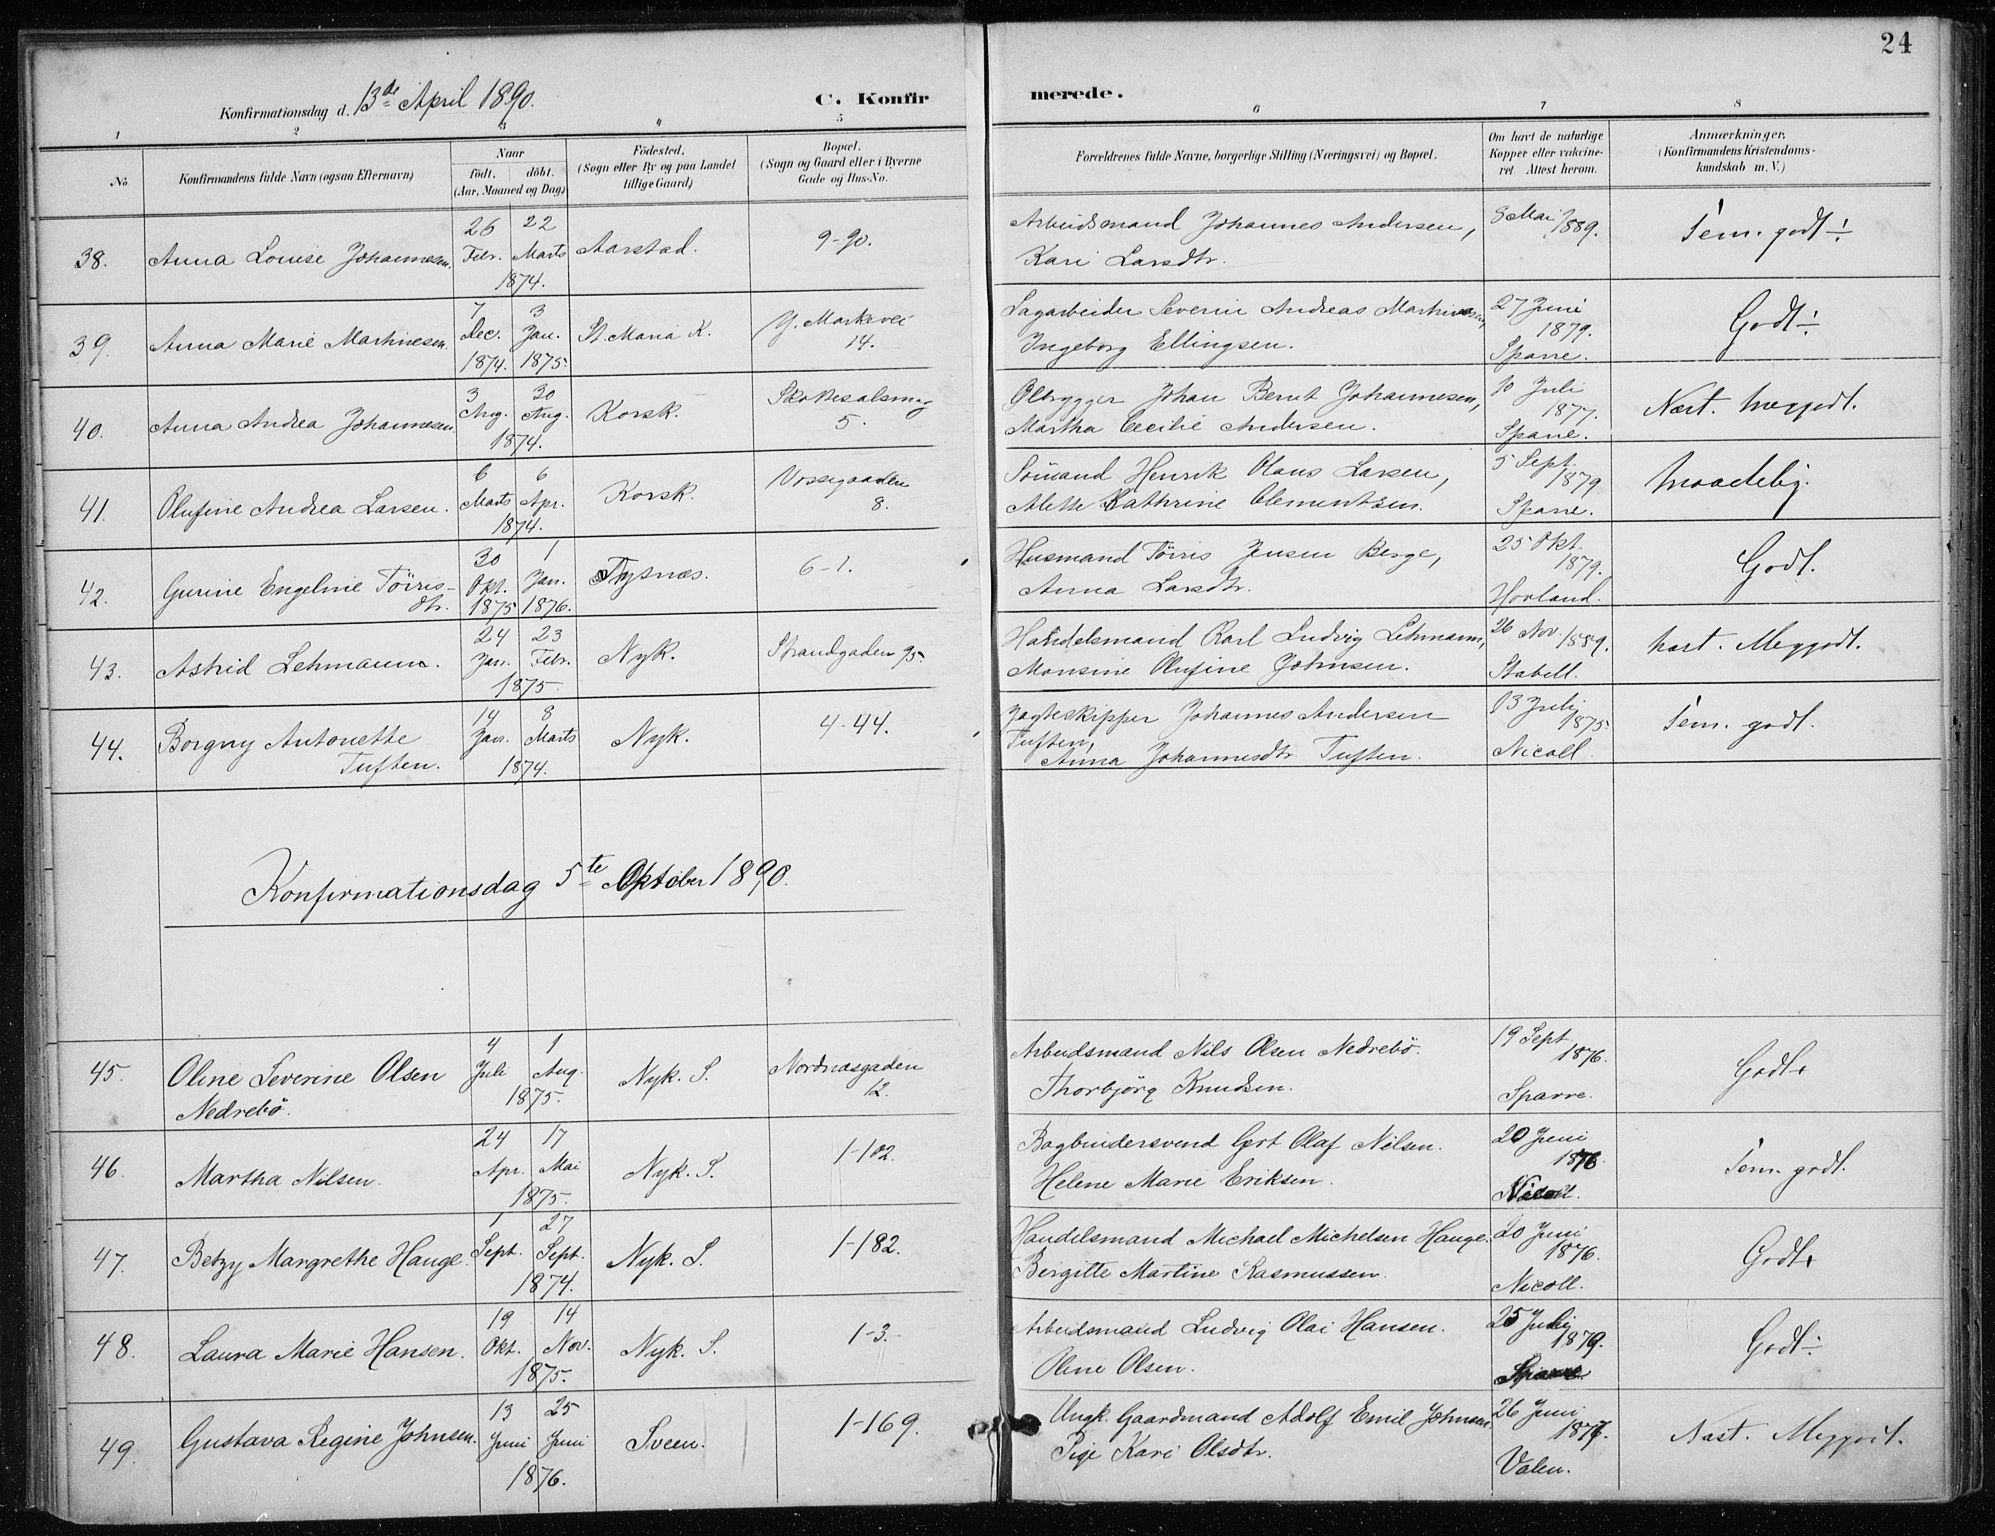 24
Konfirmationsdag d. 13de April 1890.
C. Konfirmerede.
1 2 3 4 5 6 7 8
No
Konfirmandens fulde Navn (ogsaa Efternavn)
Naar
født. døbt.
(Aar, Maaned og Dag)
Fødested.
(Sogn eller By og paa Landet
tillige Gaard)
Bopæl.
(Sogn og Gaard eller i Byerne
Gade og Hus-No.
Forældrenes fulde Navne, borgerlige Stilling (Næringsvei) og Bopæl.
Om havt de naturlige
Kopper eller vakcine-
ret. Attest herom.
Anmærkninger,
(Konfirmandens Kristendoms-
kundskab m. V.)
38. Anna Louise Johannesen.
26 Febr. 22 Marts
1874.
Aarstad.
9-90.
Arbeidsmand Johannes Andersen,
Kari Larsdtr.
8 Mai 1889.
Tem. godt ÷
39. Anna Marie Martinesen.
7 Dec. 1874. 3 Jan. 1875.
St. Maria K.
Y. Markevei
14.
Sagarbeider Severin Andreas Martinesen,
Ingeborg Ellingsen.
27 Juni
1879.
Sparre.
Godt ÷
40. Anna Andrea Johannesen.
3 Aug. 30 Aug.
1874.
Korsk.
Skottesalsmug
5.
Ølbrygger Johan Bernt Johannesen,
Martha Cecilie Andersen.
10 Juli
1877.
Sparre.
Næst. Meggodt.
41. Olufine Andrea Larsen.
6 Marts 6 Apr.
1874.
Korsk.
Vossegaaden
8.
Sömand Henrik Olaus Larsen,
Mette Kathrine Clementsen.
5 Sept.
1879.
Sparre.
Maadelig.
42. Gurine Engeline Töiris-
dtr.
30 Okt. 1875 1 Jan. 1876.
Tysnæs.
6-1.
Husmand Töiris Jensen Berge,
Anna Larsdtr.
25 Okt.
1879.
Hovland.
Godt.
43. Astrid Lehmann.
24 Jan. 23 Febr.
1875.
Nyk.
Strandgaden 95.
Handelsmand Carl Ludvig Lehmann,
Monsine Olufine Johnsen.
26 Nov. 1889.
Stabell.
Næst. Meggodt.
44. Borgny Antonette
Tuften.
14 Jan. 8 Marts
1874.
Nyk.
4-44.
Jagteskipper Johannes Andersen
Tuften,
Anna Johannesdtr Tuften.
13 Juli
1875.
Nicoll
Tem. godt.
Konfirmationsdag 5te Oktober 1890.
45. Oline Severine Olsen
Nedrebö.
4 Juli 1 Aug.
1875.
Nyk. S.
Nordnæsgaden
12.
Arbeidsmand Nils Olsen Nedrebö.
Thorbjörg Knudsen.
19 Sept.
1876.
Sparre.
Godt.
46. Martha Nilsen.
24 Apr. 17 Mai
1875.
Nyk. S.
1-102.
Bogbindersvend Gert Olaf Nilsen.
Helene Marie Eriksen.
20 Juni
1876.
Nicoll.
Tem. godt.
47. Betzy Margrethe Hauge.
1 Sept. 27 Sept.
1874.
Nyk. S.
1-182.
Handelsmand Michael Michelsen Hauge.
Birgitte Martine Rasmussen.
20 Juni
1876.
Nicoll.
Godt.
48. Laura Marie Hansen.
19 Okt. 14 Nov.
1875.
Nyk. S.
1-3.
Arbeidsmand Ludvig Olai Hansen.
Oline Olsen.
25 Juli
1879.
Sparre.
Godt ÷
49. Gustava Regine Johnsen.
13 Juni 25 Juni
1876.
Sveen.
1-169.
Ungk. Gaardmand Adolf Emil Johnsen.
Pige Kari Olsdtr.
26 Juni
1877.
Valen.
Næst. Meggodt.